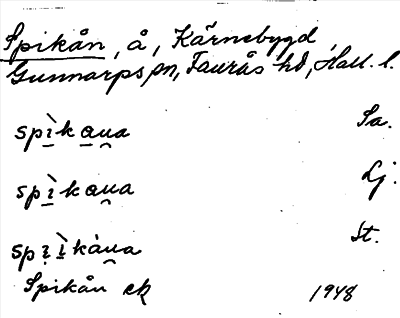 Spikån, å, Kärnebygd
Gunnarps sn, Faurås hd, Hall. l.
spì̱ka̱u̯a Sa.
spì̱kau̯a Lj.
spịì̱kàu̯a St.
Spikån ek 1948